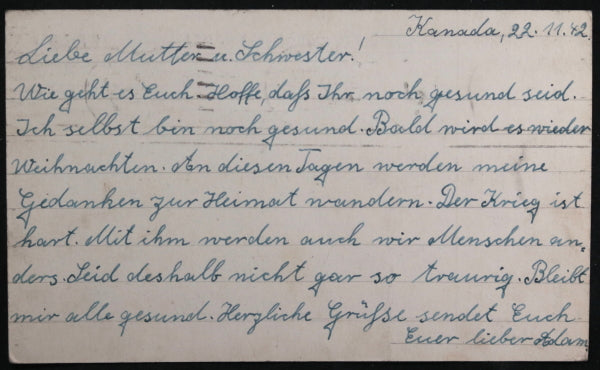 Kanada, 22. 11. 42.
Liebe Mutter u. Schwester!
Wie geht es Euch. Hoffe, daß Ihr noch gesund seid.
Ich selbst bin noch gesund. Bald wird es wieder
Weihnachten. An diesen Tagen werden meine
Gedanken zur Heimat wandern. Der Krieg ist
hart. Mit ihm werden auch wir Menschen an-
ders. Seid deshalb nicht gar so traurig. Bleibt
mir alle gesund. Herzliche Grüße sendet Euch
Euer lieber Adam